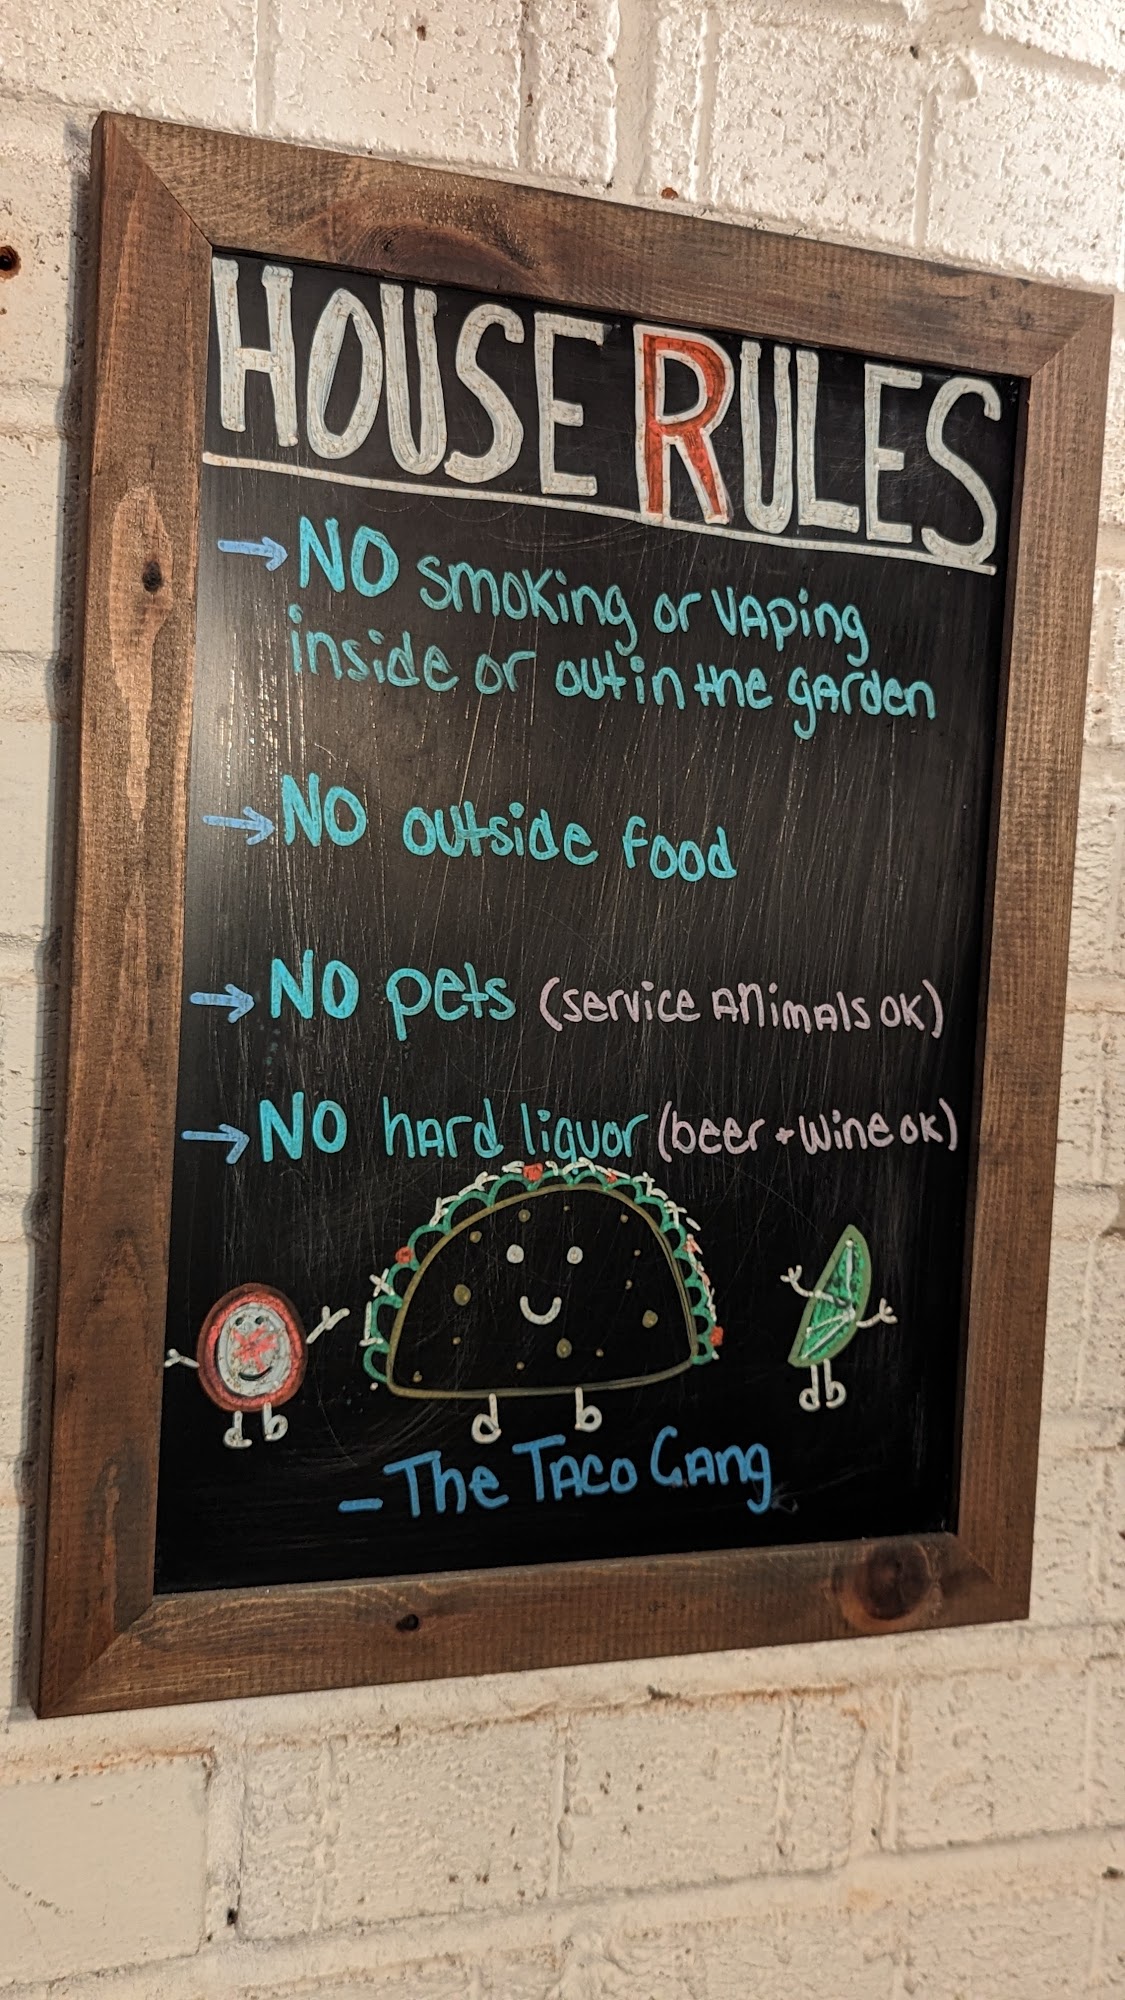 HOUSE RULES
→ NO smoking or vaping
inside or out in the garden
→ NO outside food
→ NO pets (service animals ok)
→ NO hard liquor (beer + wine ok)
- The Taco Gang